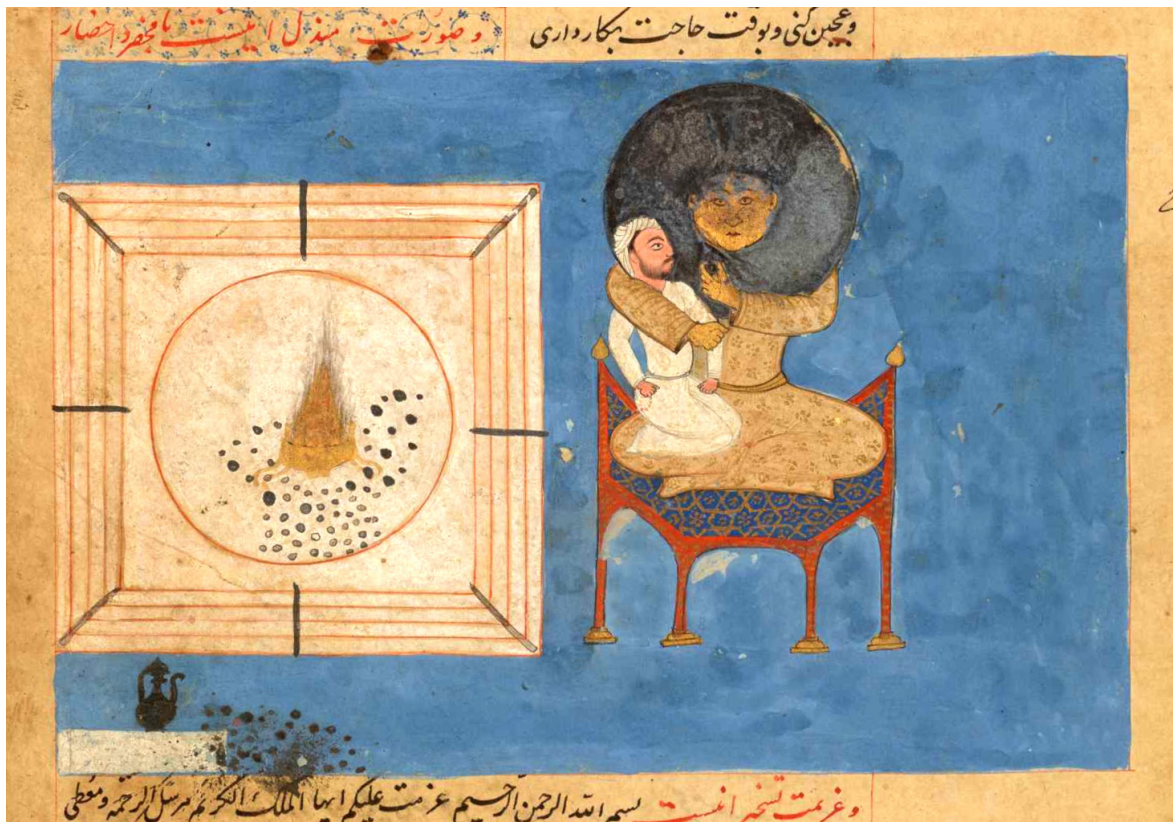 وعجین کنی وبوقت حاجت بکارداری
وصورت مندل اینست با مجمره احضار
وعزیمت تسخیر اینست بسم الله الرحمن الرحیم عزمت علیکم ایها الملک الکریم مرسل الرحمة ومعطی